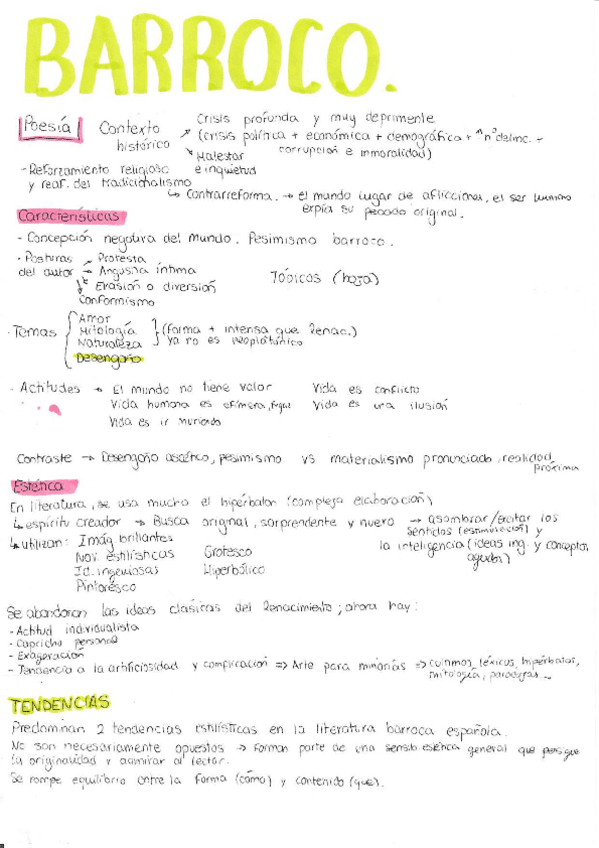 BARROCO.
Poesía
Contexto histórico
Crisis profunda y muy deprimente
(crisis política + económica + demográfica + ^nº delinc. -
corrupción e inmoralidad)
Malestar e inquietud
- Reforzamiento religioso
y reaf. del tradicionalismo
↳ Contrarreforma. → el mundo lugar de afliccional, el ser humano
expía su pecado original.
Características
- Concepción negativa del mundo. Pesimismo barroco.
- Posturas del autor
→ Protesta
→ Angustia íntima
Evasión o diversión
Conformismo
Tópicos (hoja)
· Temas
Amor
Mitología
Naturaleza
Desengaño
(forma + intensa que Renac.)
ya no es neoplatónico
· Actitudes → El mundo no tiene valor
Vida humana es efímera, fugaz
Vida es ir muriendo
Vida es conflicto
Vida es una ilusión
Contraste → Desengaño ascético, pesimismo vs materialismo pronunciado, realidad
próxima
Estética
En literatura, se usa mucho el hipérbaton (compleja elaboración)
↳ espíritu creador → Busca original, sorprendente y nuevo → asombrar/excitar los
sentidos (estimulación) y
la inteligencia (ideas ing. y conceptos
agudos)
↳ utilizan: Imág brillantes
Nov. estilísticas
Id. ingeniosas
Pintoresco
Grotesco
Hiperbólico
Se abandonan las ideas clásicas del Renacimiento; ahora hay:
- Actitud individualista
- Capricho personal
- Exageración
- Tendencia a la artificiosidad y complicación => Arte para minorías => cultismos, léxicos, hipérbatos,
mitología, paradojas...
TENDENCIAS
Predominan 2 tendencias estilísticas en la literatura barroca española.
No son necesariamente opuestos → Forman parte de una sensib estética general que persigue
la originalidad y admirar al lector.
Se rompe equilibrio entre la forma (cómo) y contenido (que).